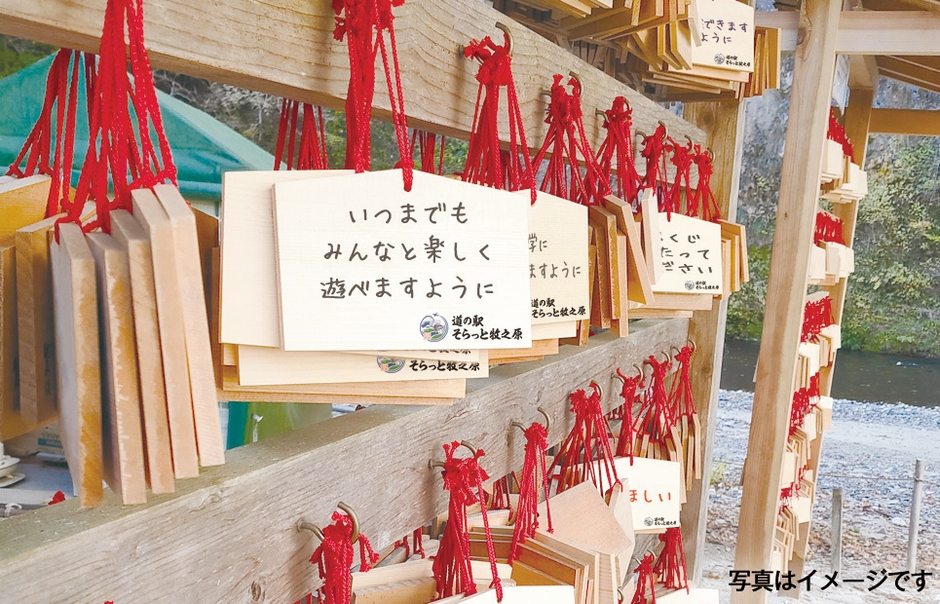 できます
ように
いつまでも
みんなと楽しく
遊べますように
道の駅
そらっと牧之原
学に
ますように
道の駅
そらっと牧之原
くじ
たって
ださい
そらっと牧之原
ほしい
道の駅
そらっと牧之原
写真はイメージです